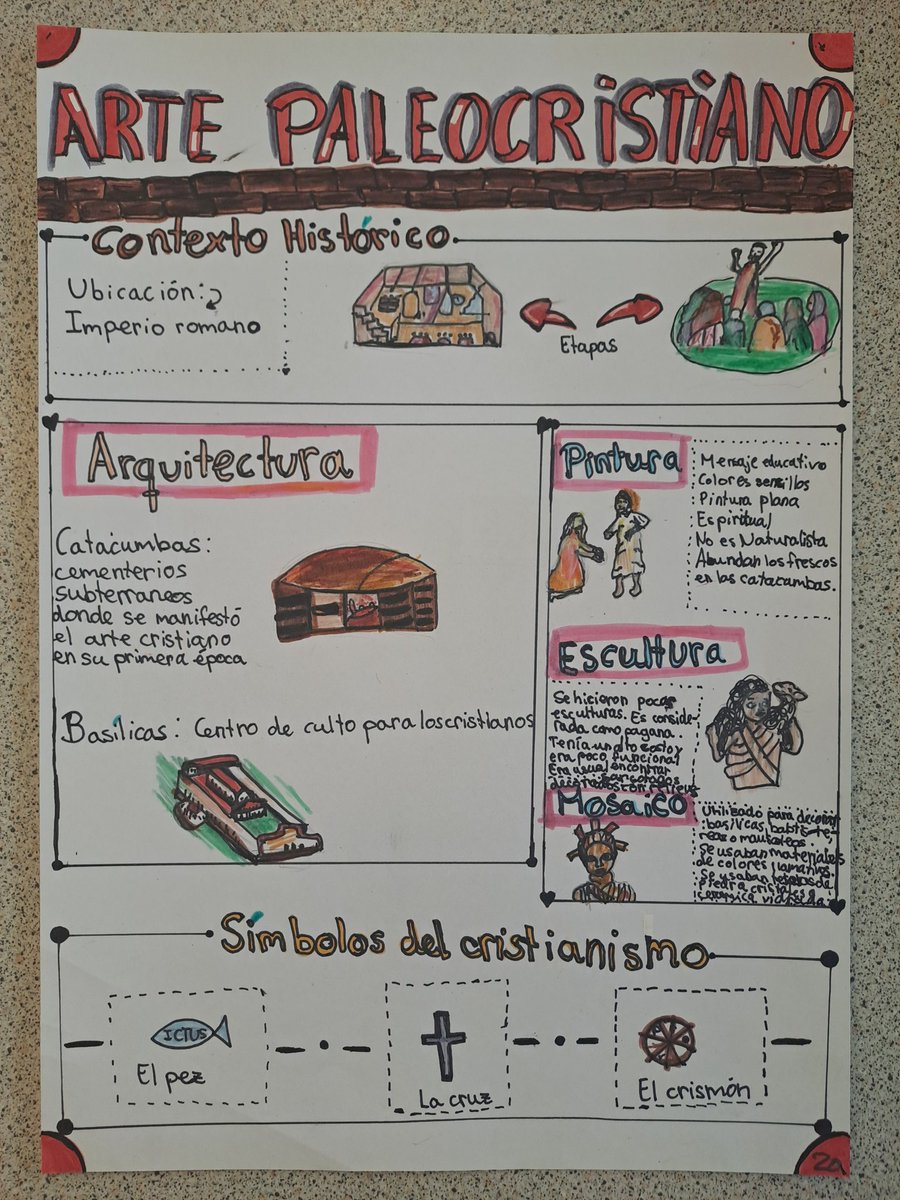 ARTE PALEOCRISTIANO
Contexto Histórico
Ubicación:
Imperio romano
Etapas
Arquitectura
Catacumbas:
cementerios
subterraneos
donde se manifestó
el arte cristiano
en su primera época
Basílicas: Centro de culto para los cristianos
Pintura
Mensaje educativo
Colores sensillos
Pintura plana
Espiritual
No es Naturalista
Abundan los frescos
en las catacumbas.
Escultura
Se hicieron pocas
esculturas. Es conside-
rada como pagana.
Tenía un alto costo y
era poco funcional
Era usual encontrar
sarcofagos
decorados con relieves
Mosaico
Utilizado para decorar
basílicas, baptiste-
reos o mausoleos.
Se usaban materiales
de colores llamativos.
Se usaban de
piedra cristal o
ceramica vidriada.
Símbolos del cristianismo
ICTUS
El pez
La cruz
El crismón
2a